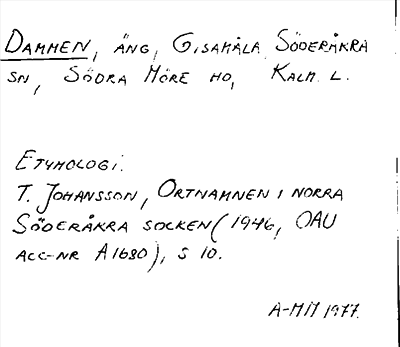 DAMMEN, ÄNG, GISAMÅLA SÖDERÅKRA
SN, SÖDRA MÖRE HD, KALM. L.
ETYMOLOGI.
T. JOHANSSON, ORTNAMNEN I NORRA
SÖDERÅKRA SOCKEN (1946, OAU
ACC-NR A1680), S 10.
A-MM 1977.